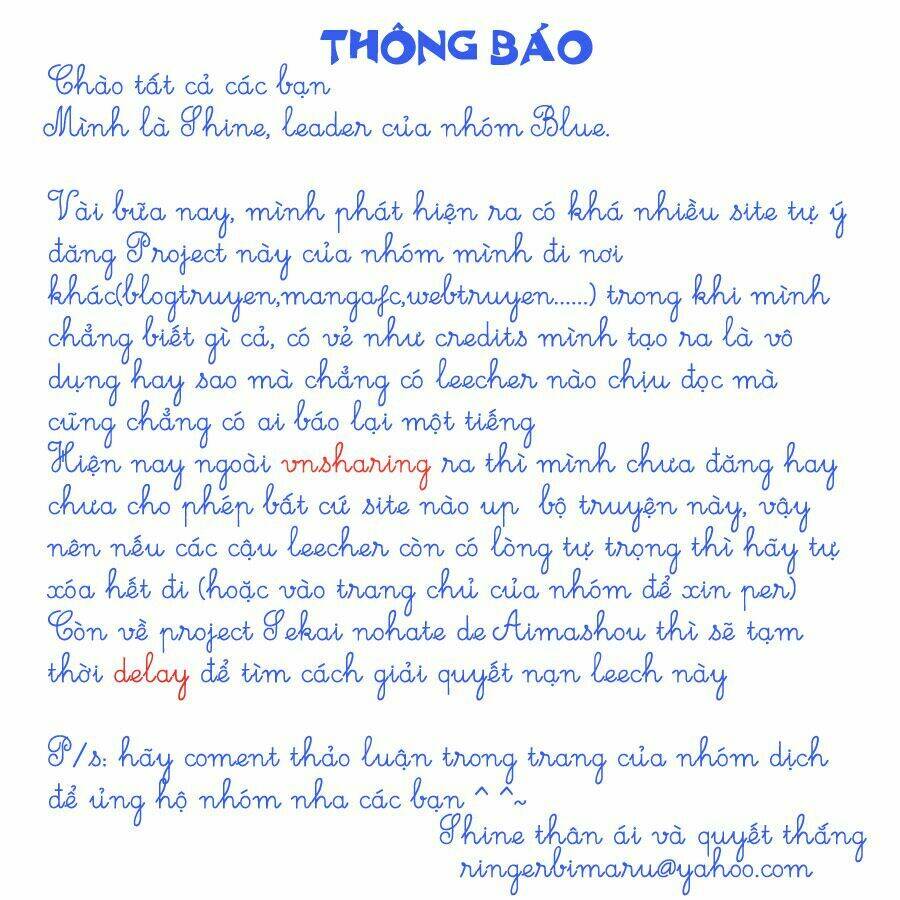 THÔNG BÁO
Chào tất cả các bạn
Mình là Shine, leader của nhóm Blue.
Vài bữa nay, mình phát hiện ra có khá nhiều site tự ý
đăng Project này của nhóm mình đi nơi
khác(blogtruyen,mangafc,webtruyen......) trong khi mình
chẳng biết gì cả, có vẻ như credits mình tạo ra là vô
dụng hay sao mà chẳng có leecher nào chịu đọc mà
cũng chẳng có ai báo lại một tiếng
Hiện nay ngoài vnsharing ra thì mình chưa đăng hay
chưa cho phép bất cứ site nào up bộ truyện này, vậy
nên nếu các cậu leecher còn có lòng tự trọng thì hãy tự
xóa hết đi (hoặc vào trang chủ của nhóm để xin per)
Còn về project Sekai nohate de Aimashou thì sẽ tạm
thời delay để tìm cách giải quyết nạn leech này
P/s: hãy coment thảo luận trong trang của nhóm dịch
để ủng hộ nhóm nha các bạn ^ ^~
Shine thân ái và quyết thắng
ringerbimaru@yahoo.com